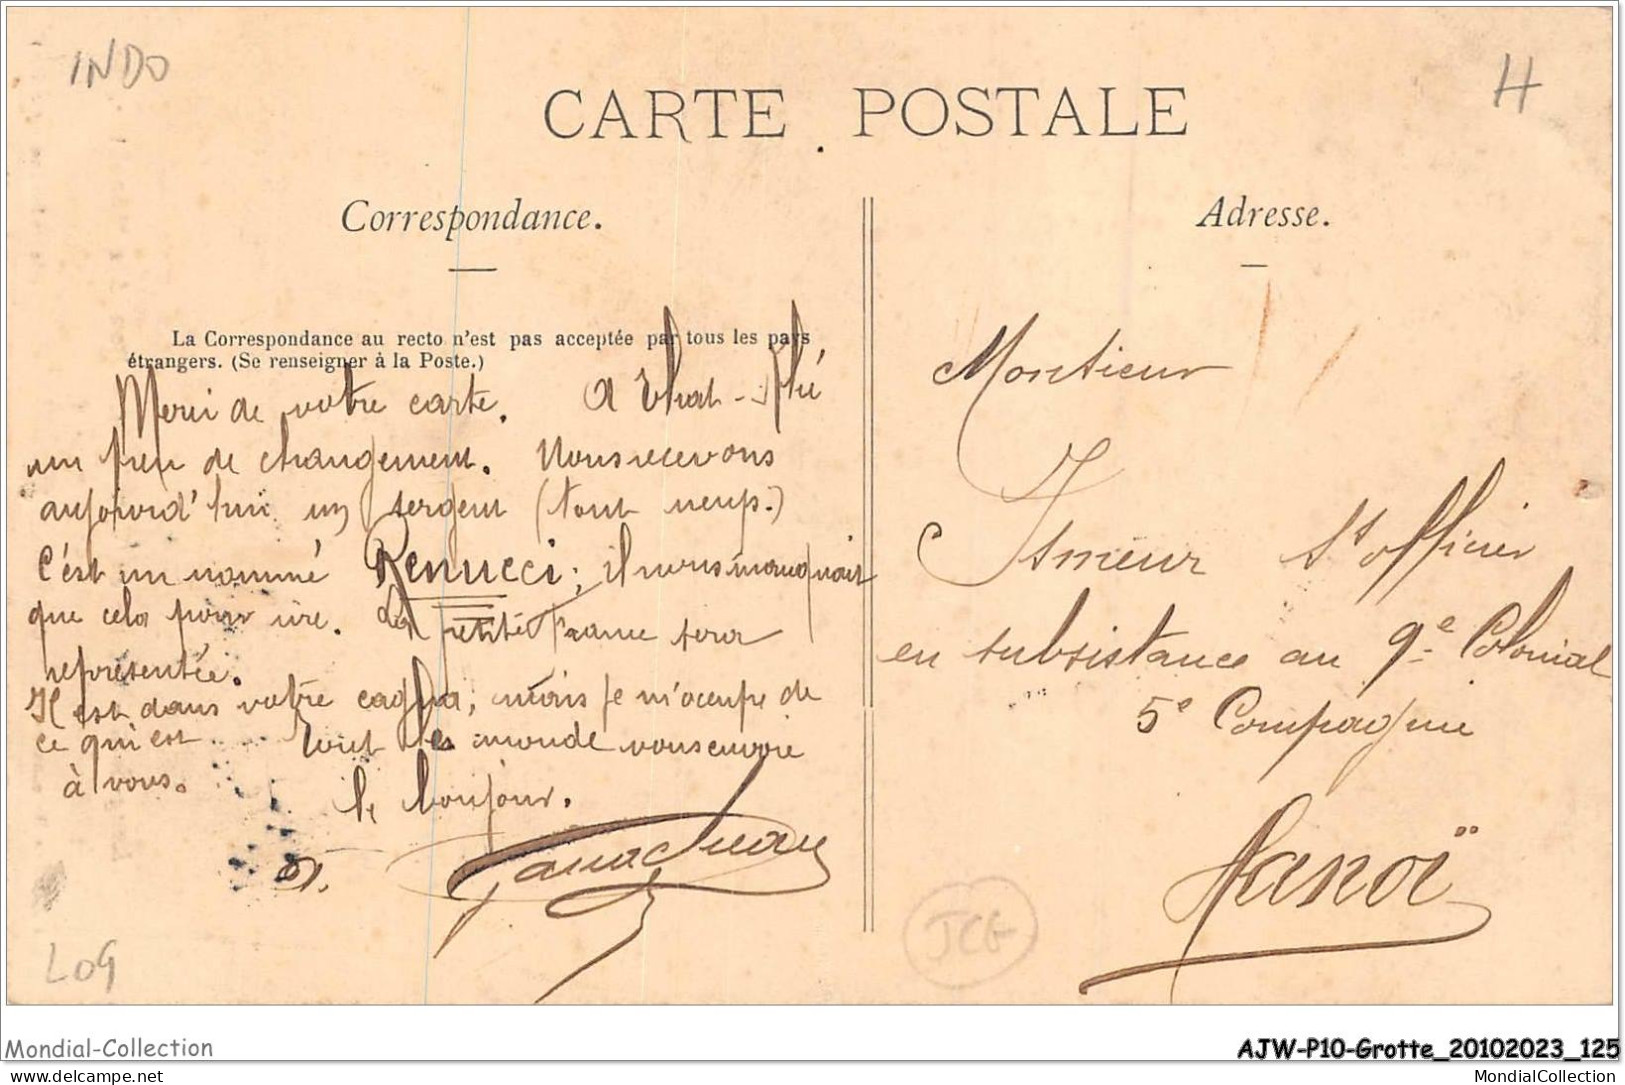 INDO
H
CARTE POSTALE
Correspondance.
La Correspondance au recto n'est pas acceptée par tous les pays
étrangers. (Se renseigner à la Poste.)
Merci de votre carte. A That-Khé
un peu de changement. Nous recevons
aujourd'hui un sergent (tout neuf.)
C'est un nommé Renucci; il nous manquait
que cela pour rire. La petite France sera
représentée.
Il est dans votre cagna, mais je m'occupe de
ce qui est
à vous.
Tout le monde vous envoie
le bonjour.
LO9
Adresse.
Monsieur
St officier
en subsistance au 9e Colonial
5e Compagnie
Hanoï
JCG
Mondial-Collection
AJW-P10-Grotte_20102023_125
www.delcampe.net
MondialCollection